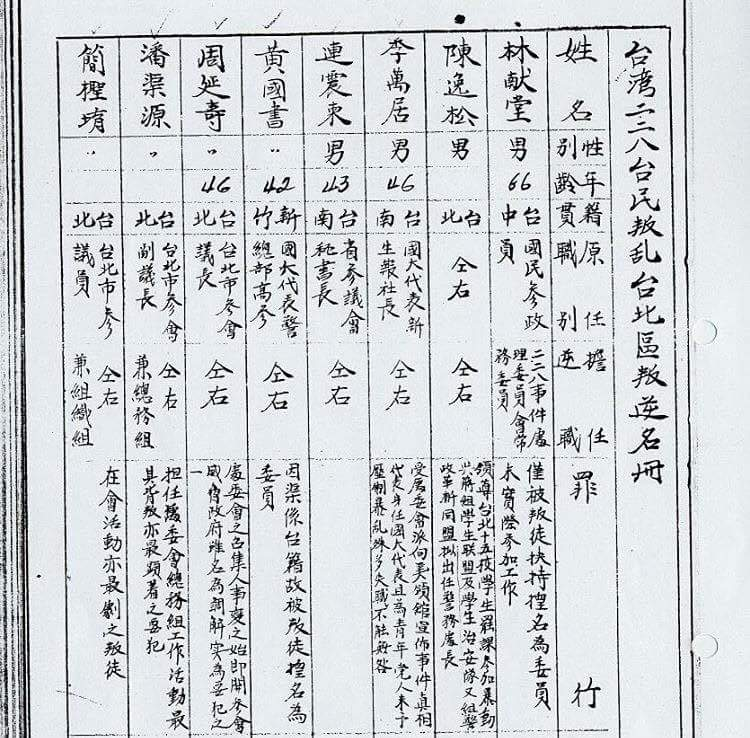 台湾二二八台民叛乱台北區叛逆名冊
姓名
性別
年齡
籍貫
原任
職別
擔任
逆職
罪行
林献堂
男
66
台中
國民參政
員
二二八事件處
理委員會常
務委員
僅被叛徒扶持揑名為委員
未實際參加工作
陳逸松
男
台北
仝右
仝右
領導台北十五校學生罷課參加暴動
組學生联盟及學生治安隊又組
政革新同盟拟出任警務處長
李萬居
男
46
台南
國大代表新
生報社長
仝右
受處委會派向美領館宣佈事件真相
代表身任國大代表且為青年党人未予
壓制暴乱殊多失職不能無咎
連震東
男
43
台南
省參議會
秘書長
仝右
黃國書
〃
42
新竹
國大代表警
總部高參
仝右
因渠係台籍故被叛徒揑名為
委員
周延壽
〃
46
台北
台北市參會
議長
仝右
處委會之召集人事変之始即開參會
威脅政府雖名為調解実為要犯之
一
潘渠源
〃
台北
台北市參會
副議長
仝右
兼總務組
担任處委會總務組工作活動最
具背叛亦最顕著之要犯
簡檉堉
〃
台北
台北市參
議員
仝右
兼組織組
在會活動亦最劇之叛徒